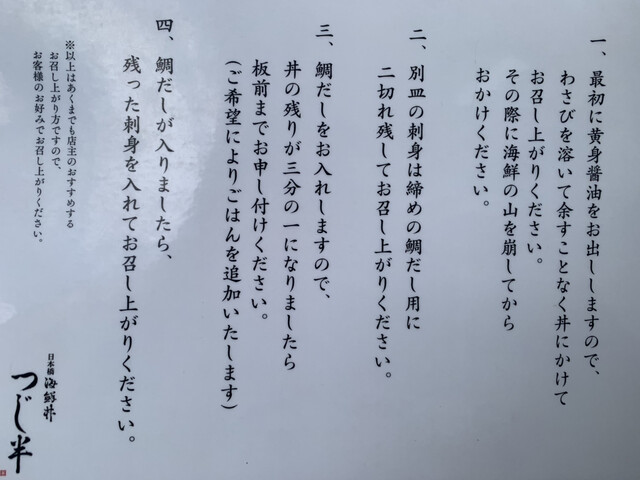 一、最初に黄身醤油をお出ししますので、
わさびを溶いて余すことなく丼にかけて
お召し上がりください。
その際に海鮮の山を崩してから
おかけください。
二、別皿の刺身は締めの鯛だし用に
二切れ残してお召し上がりください。
三、鯛だしをお入れしますので、
丼の残りが三分の一になりましたら
板前までお申し付けください。
(ご希望によりごはんを追加いたします)
四、鯛だしが入りましたら、
残った刺身を入れてお召し上がりください。
※以上はあくまでも店主のおすすめする
お召し上がり方ですので、
お客様のお好みでお召し上がりください。
日本橋
海鮮丼
つじ半